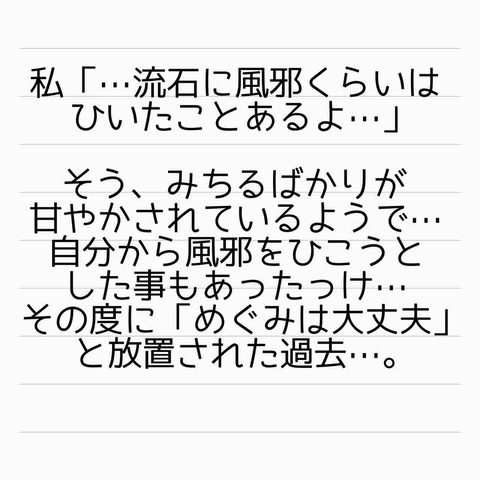 私「…流石に風邪くらいは
ひいたことあるよ…」
そう、みちるばかりが
甘やかされているようで…
自分から風邪をひこうと
した事もあったっけ…
その度に「めぐみは大丈夫」
と放置された過去…。